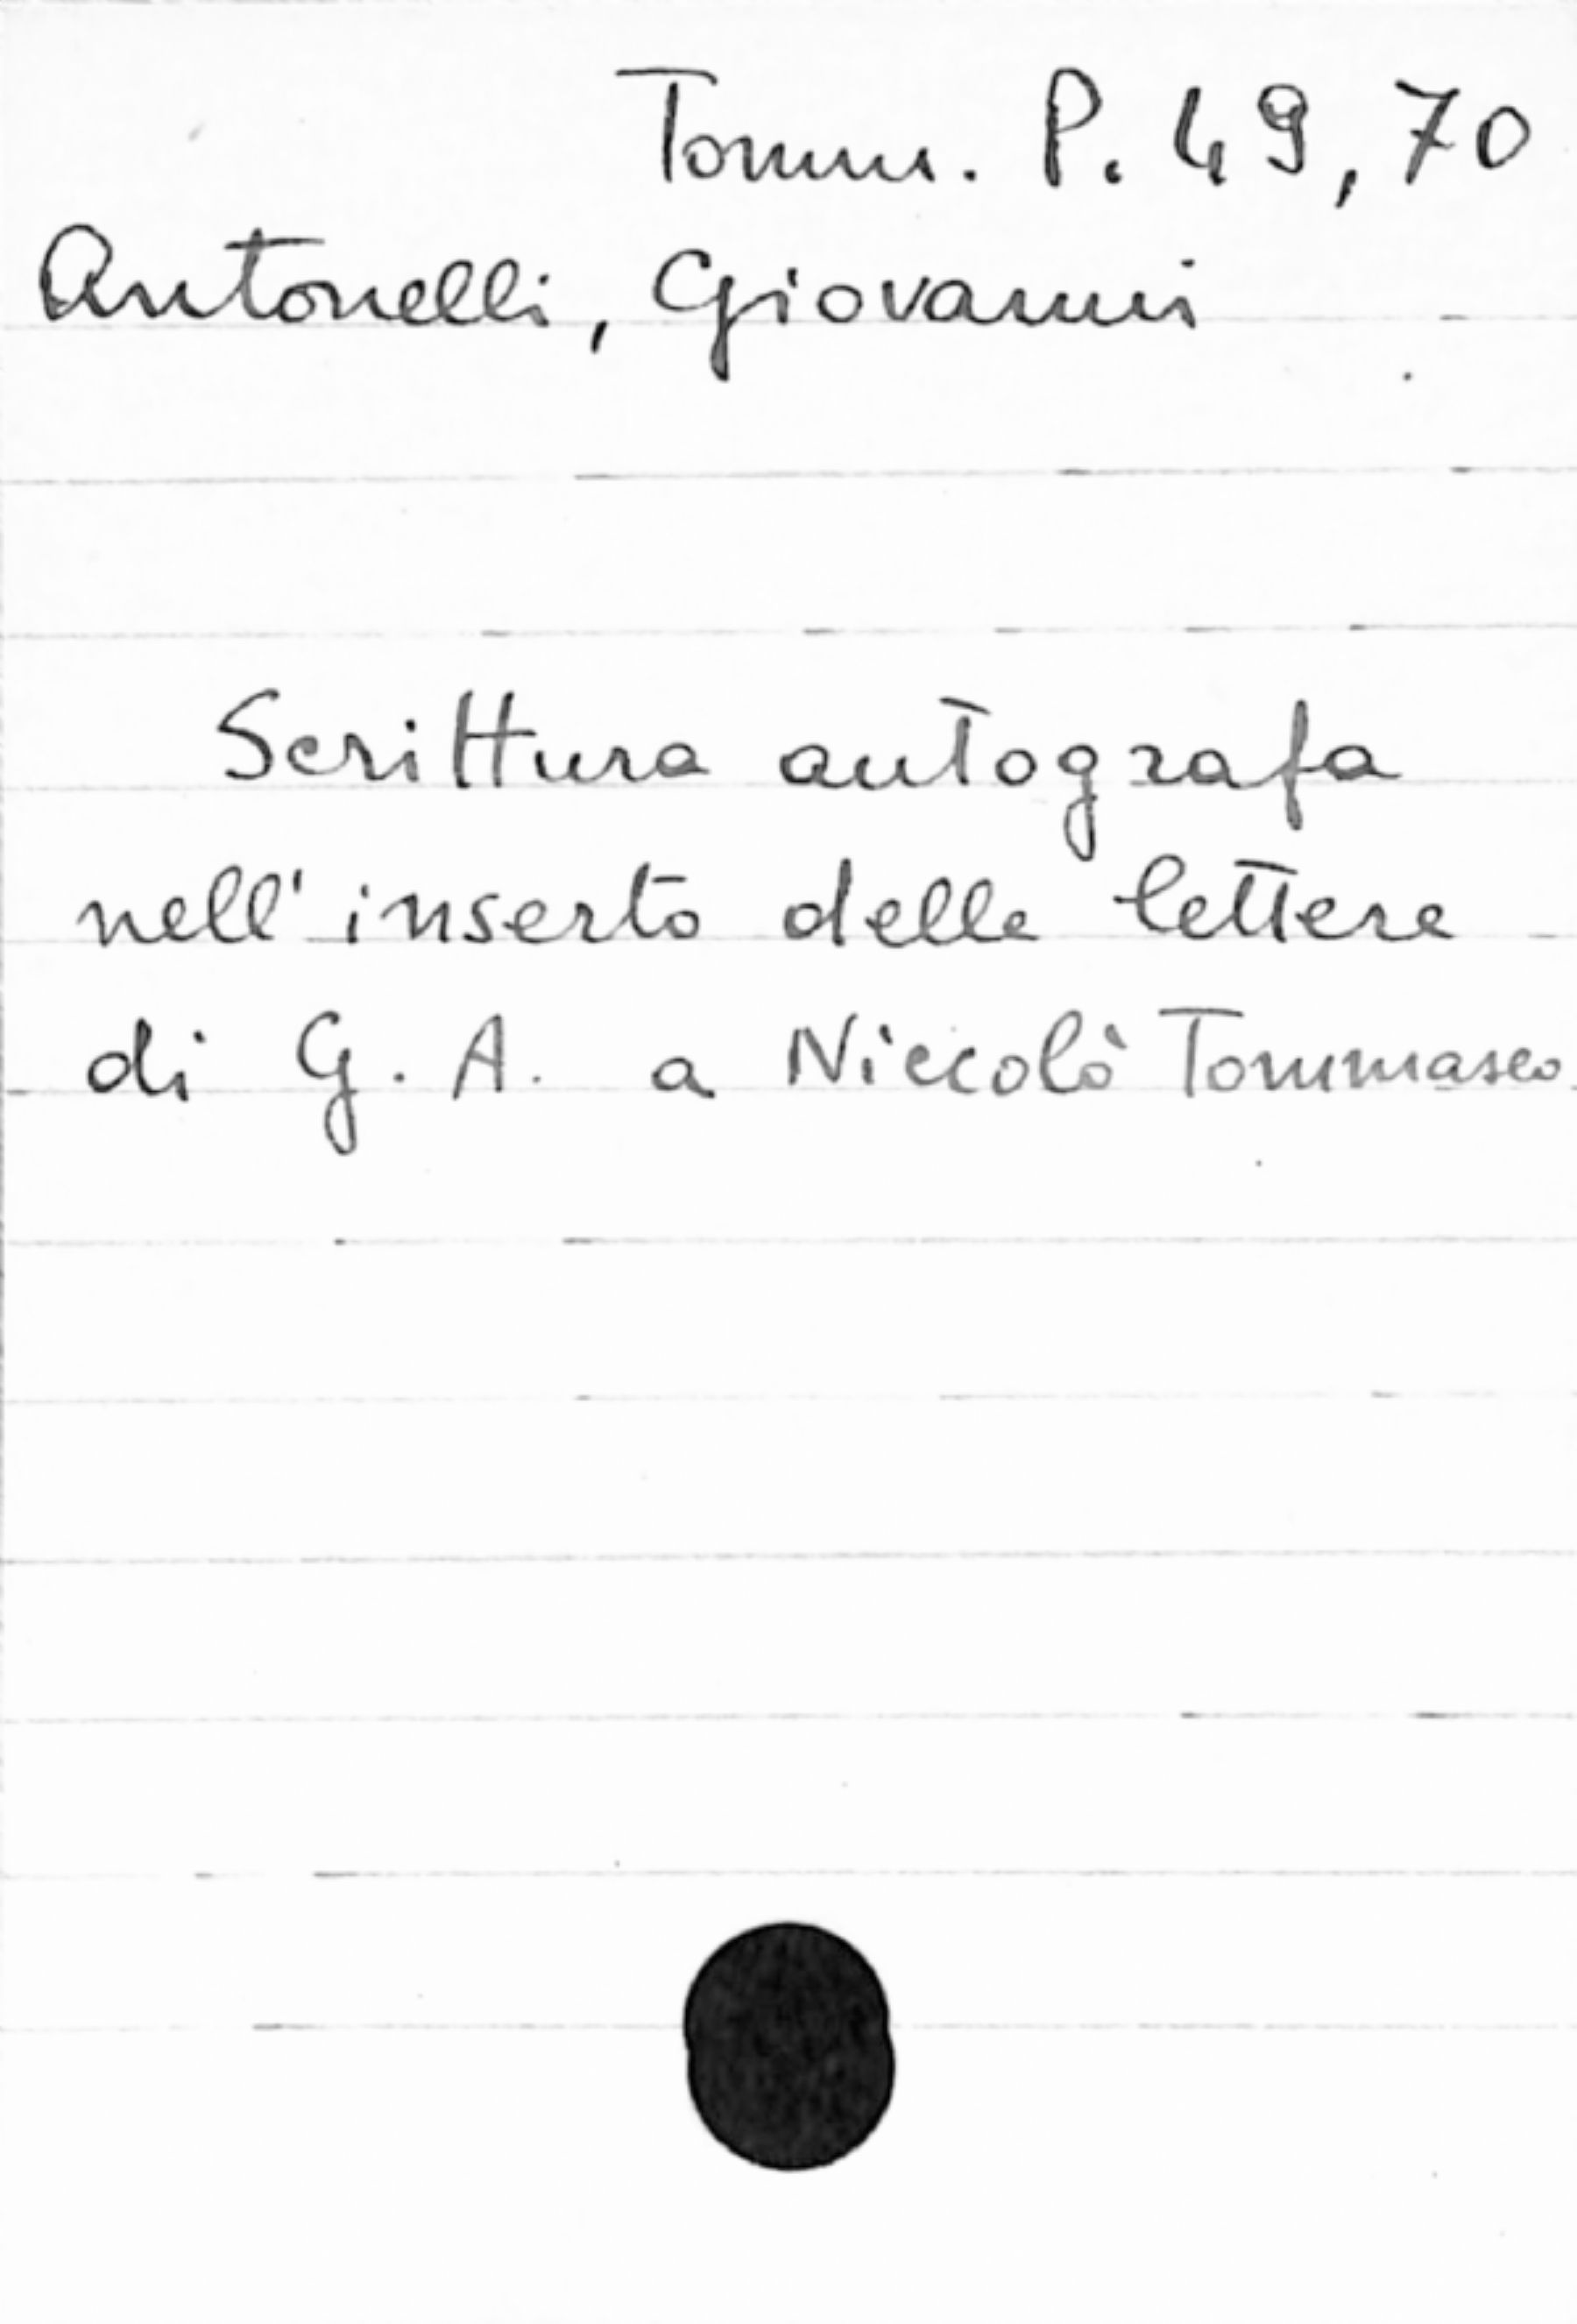 Tomm. P. 49, 70
Antonelli, Giovanni
Scrittura autografa
nell'inserto delle lettere
di G. A. a Niccolò Tommaseo